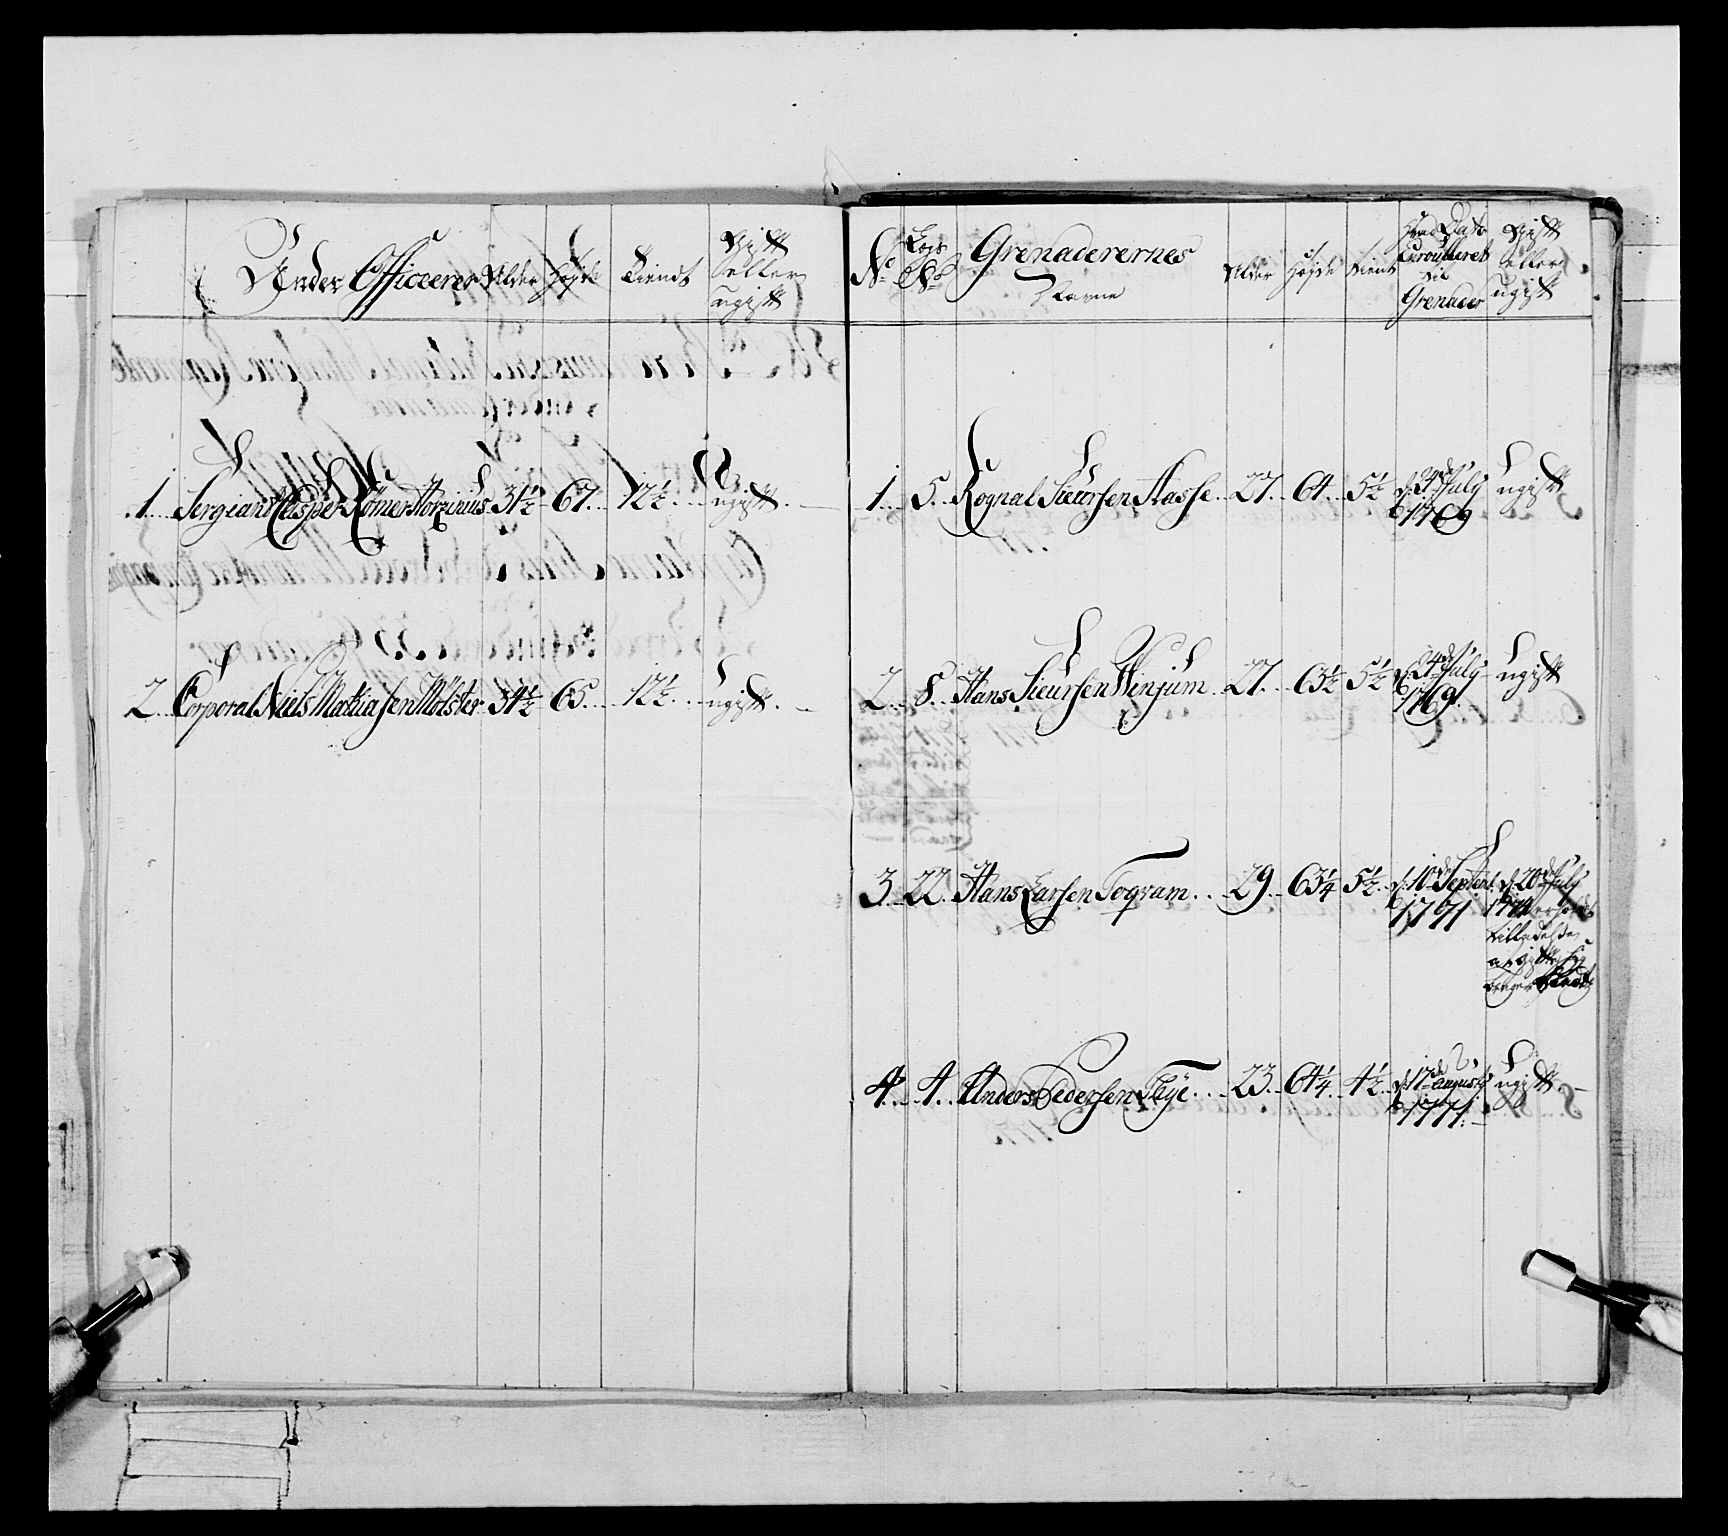 Under Officerer Alder Høyde Tiendt Gift eller ugift
1 Sergiant Casper Rømer Horzinius 31½ 67 12½ ugift
2 Corporal Niels Mathiasen Mølster 34½ 65 12½ ugift
No Lægs No Grenaderernes Navne Alder Høyde Tient Hvad Dato Enroulleret til Grenader Gift eller ugift
1 5 Rognal Sieursen Hasse 27 64 5½ d: 24de July 1769 ugift
2 8 Hans Sieursen Winjum 27 63½ 5½ d: 24de July 1769 ugift
3 22 Hans Larsen Togram 29 63¼ 5½ d: 10de Septbr 1771 d: 20de July
4 4 Anders Pedersen Flye 23 64¼ 4½ d: 17de augusti 1771 ugift